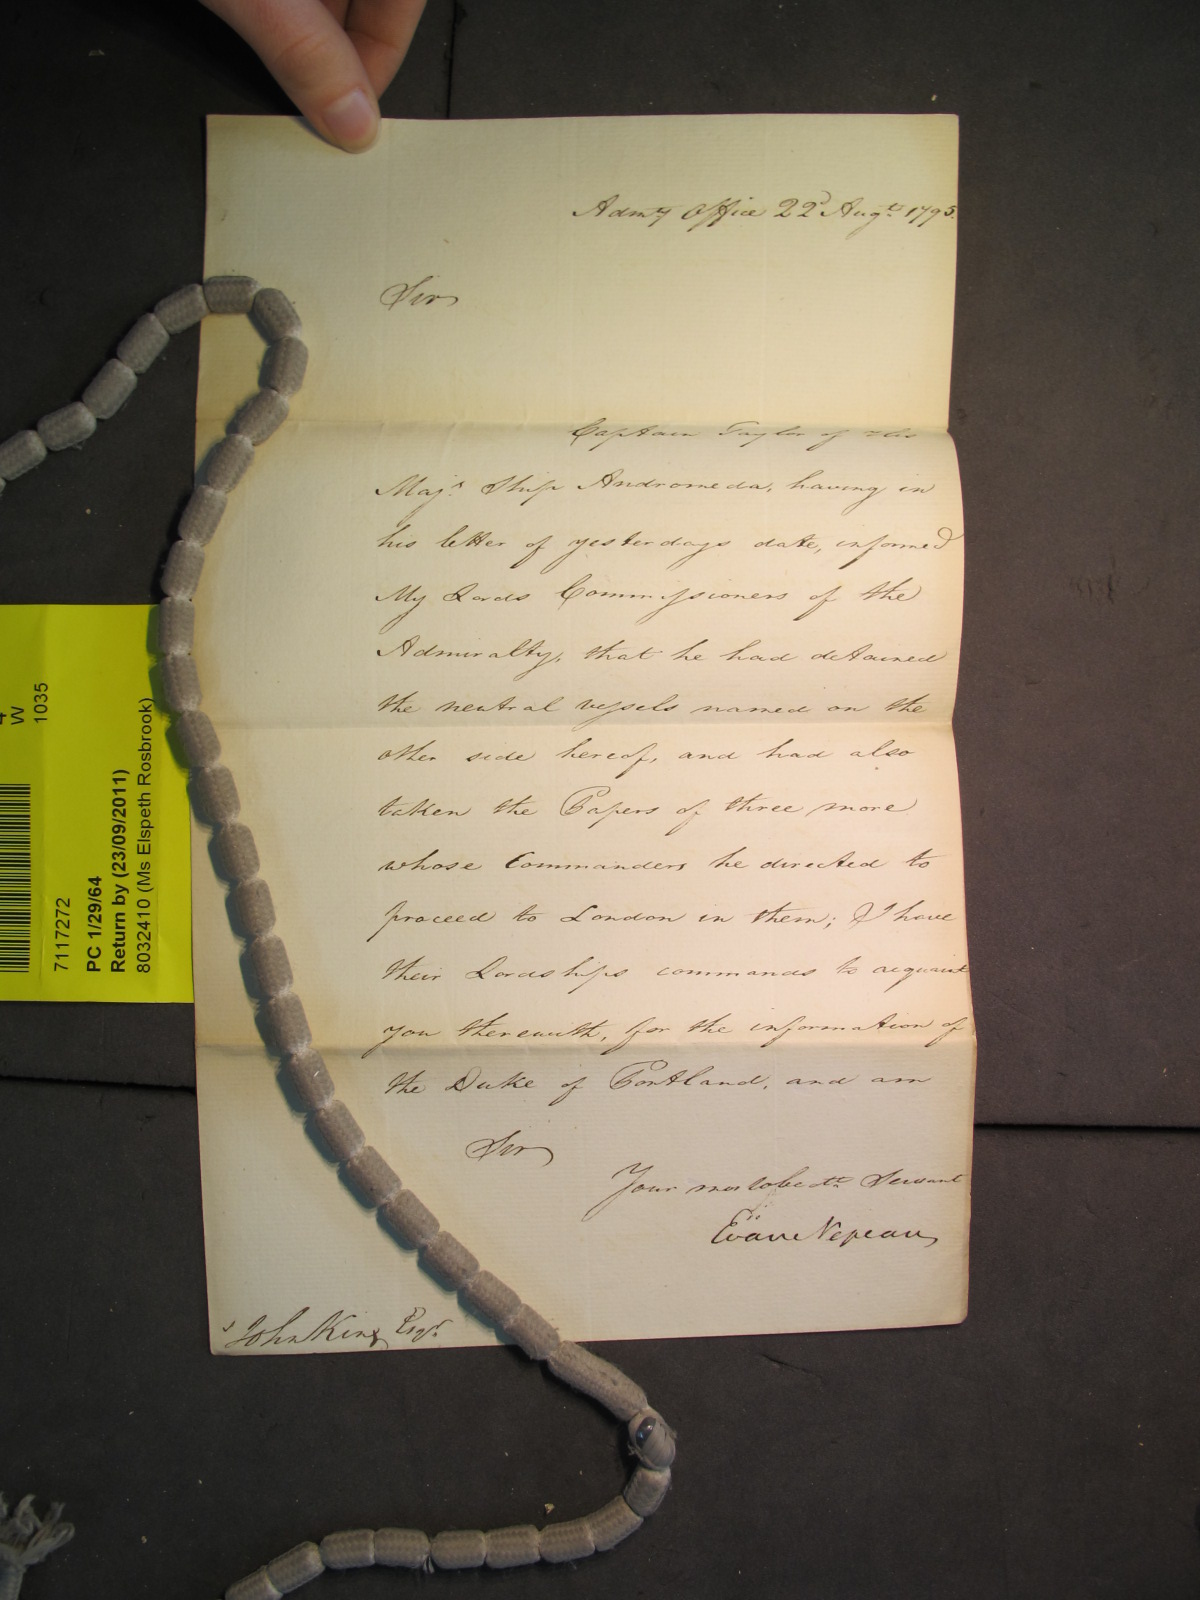 Admty Office 22d Augt. 1795.
Sir
Captain Taylor of His
Majs. Ship Andromeda, having in
his letter of yesterdays date, informed
My Lords Commissioners of the
Admiralty, that he had detained
the neutral vessels named on the
other side hereof, and had also
taken the Papers of three more
whose Commanders he directed to
proceed to London in them; I have
their Lordships commands to acquaint
you therewith, for the information of
the Duke of Portland, and am
Sir
Your most obedt. Servant
Evan Nepean
John King Esqr.
W
1035
7117272
PC 1/29/64
Return by (23/09/2011)
8032410 (Ms Elspeth Rosbrook)